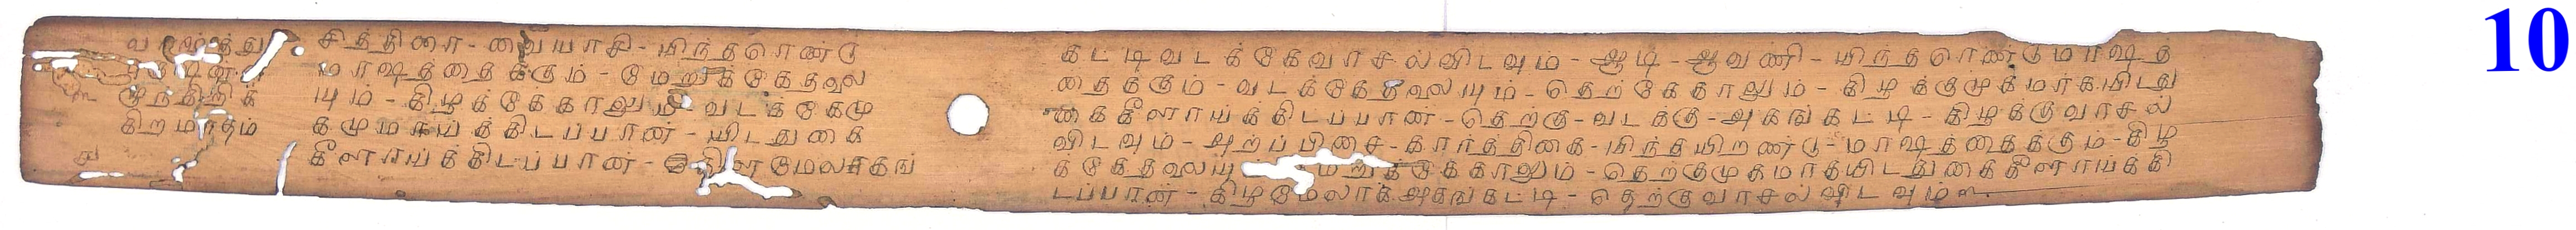 10
சித்திரை - வையாசி - யிந்தரெண்டு
மாஷத்தைக்கும் - மேறுக்கேதலை
யும் - கிழக்கேகாலும் - வடக்கேமு
கமுமாய்க்கிடப்பான் - யிடதுகை
கீளாய்க்கிடப்பான் - மேலாகதங்
முந்திறிக்
கிறமாதம்
கட்டிவடக்கேவாசல்விடவும் - ஆடி - ஆவணி - யிந்தரெண்டுமாஷத்
தைக்கும் - வடக்கேதலையும் - தெற்கேகாலும் - கிழக்குமுகமாகயிடது
கைகீளாய்க்கிடப்பான் - தெற்கு - வடக்கு - அகங்கட்டி - கிழக்குவாசல்
விடவும் - அற்ப்பிசை - கார்த்திகை - யிந்தயிறண்டு - மாஷத்தைக்கும் - கிழ
க்கேதலையு மறுக்கேகாலும் - தெற்குமுகமாகயிடதுகைகீளாய்க்கி
டப்பான் - கிழமேலாக அகங்கட்டி - தெற்குவாசல்விடவும்